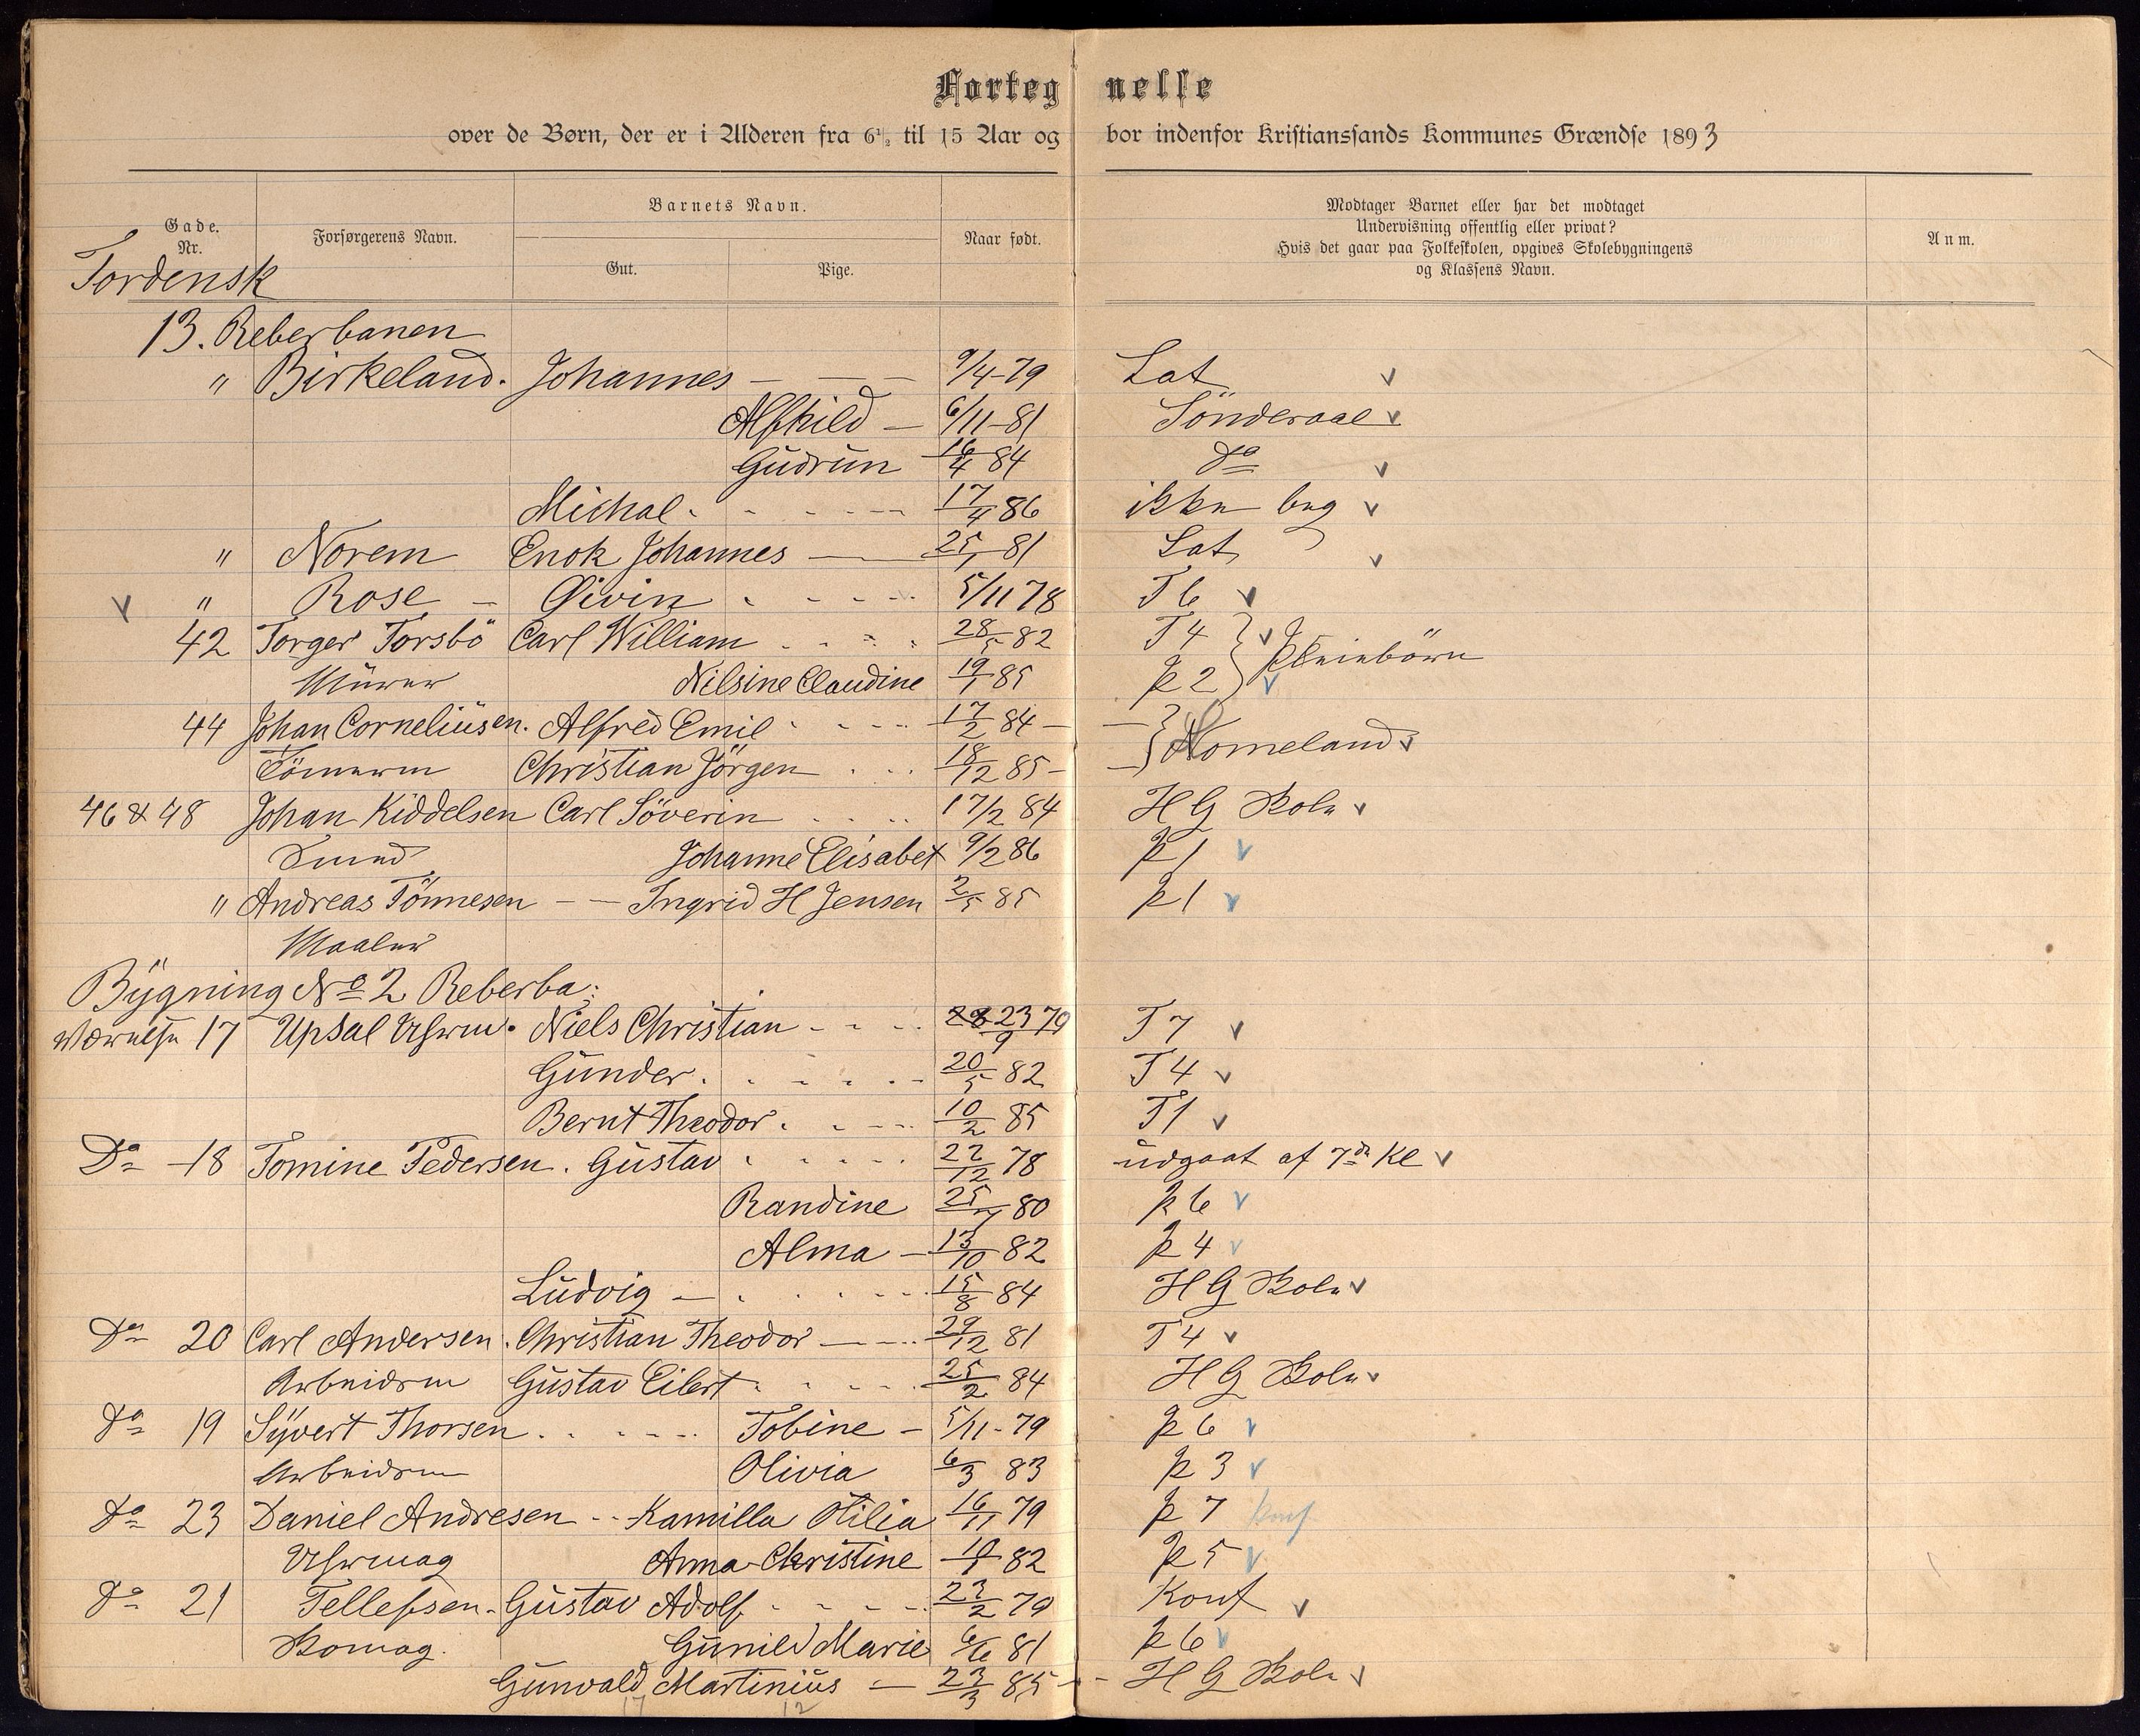 Forteg nelse
over de Børn, der er i Alderen fra 6½ til 15 Aar og bor indenfor Kristianssands Kommunes Grændse 1893
Gade. Nr.
Forsørgerens Navn.
Barnets Navn.
Gut.
Pige.
Naar født.
Modtager Barnet eller har det modtaget
Undervisning offentlig eller privat?
Hvis det gaar paa Folkeskolen, opgives Skolebygningens
og Klassens Navn.
Anm.
Tordensk
13. Reberbanen
" Birkeland. Johannes - 9/4-79 Lat v
Alfhild - 6/11-81 Sönderaal v
Gudrun 16/4 84 do v
Michal 17/4 86 ikke beg v
" Norem Enok Johannes - 25/1 81 Lat v
v " Rose - Öivin 5/11 78 T 6 v
42 Torger Torsbö Carl William 28/5 82 T 4 } v
Murer Nilsine Claudine 19/1 85 p 2 } v Pleiebörn
44 Johan Corneliusen. Alfred Emil 17/2 84 -
Tömerm Christian Jörgen 18/12 85 - } Homeland v
46 & 48 Johan Kiddelsen Carl Söverin 17/2 84 H G Skole v
Smed Johanne Elisabet 9/2 86 p 1 v
" Andreas Tönnesen - - Ingrid H Jensen 2/5 85 p 1 v
Maaler
Bygning No 2 Reberba:
Værelse 17 Upsal Uhrm. Niels Christian 28 23/9 79 T 7 v
Gunder 20/5 82 T 4 v
Bernt Theodor 10/2 85 T 1 v
Do - 18 Tomine Pedersen. Gustav 22/12 78 udgaat af 7de Kl v
Randine 25/7 80 p 6 v
Alma - 13/10 82 p 4 v
Ludvig - 15/8 84 H G Skole v
Do 20 Carl Andersen. Christian Theodor - 29/12 81 T 4 v
Arbeidsm Gustav Eilert 25/2 84 H G Skole v
Do 19 Syvert Thorsen Tobine - 5/11-79 p 6 v
Arbeidsm Olivia 6/3 83 p 3 v
Do 23 Daniel Andresen - - Kamilla Otilia 16/11 79 p 7 konf
Uhrmag Anna Christine 82 p 5 v
Do 21 Tellefsen - Gustav Adolf 23/2 79 Konf v
Skomag. Gunild Marie 6/6 81 p 6 v
Gunvald Martinius - 23/3 85 - - H G Skole v
17 12